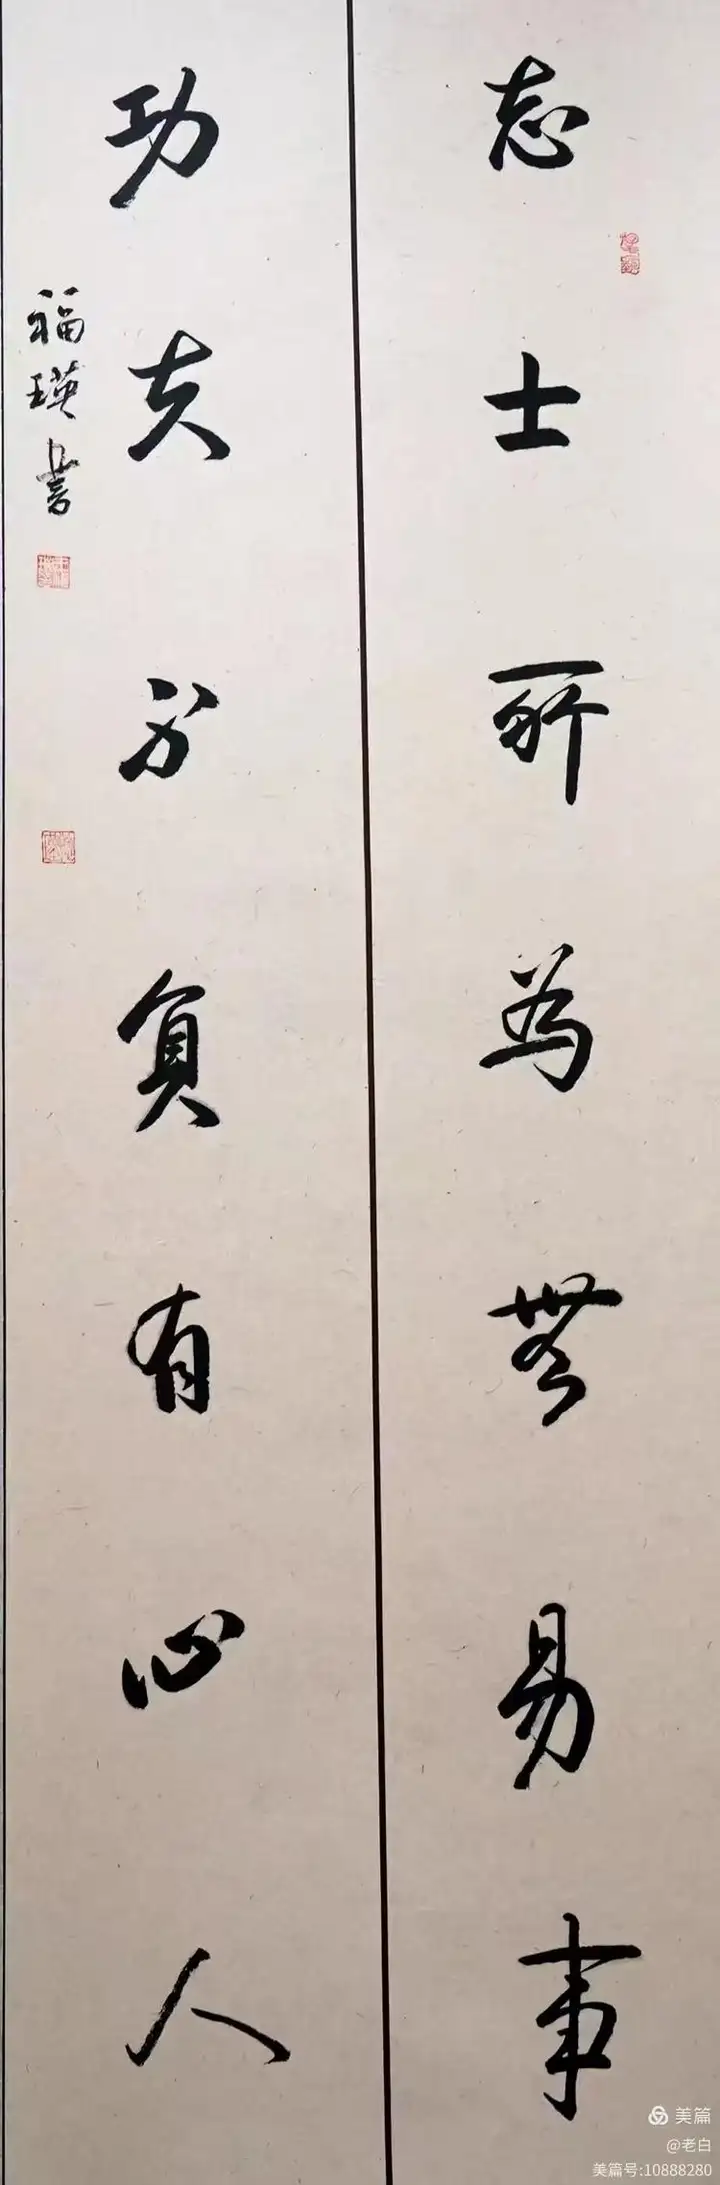 志士所為無易事
功夫不負有心人
福瑛書
美篇
@老白
美篇号:10888280